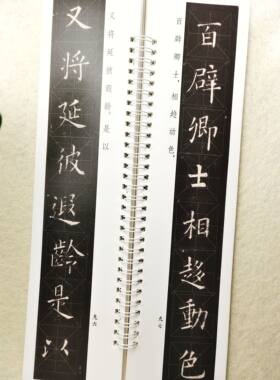 又将延彼遐龄，是以
又将延彼遐齡是以
九六
百辟卿士，相趋动色，
百辟卿士相趍動色
九七